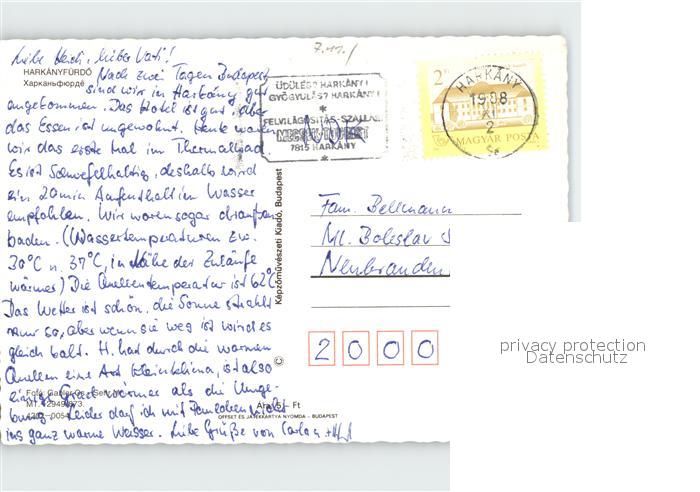 Liebe Heidi, lieber Vati!
7.11.!
HARKÁNYFÜRDŐ
Харканьфюрдё
Nach zwei Tagen Budapest
sind wir in Harkány gut
angekommen. Das Hotel ist gut, aber
das Essen ist ungewohnt. Heute waren
wir das erste Mal im Thermalbad
Es ist Schwefelhaltig, deshalb wird
ein 20 min Aufenthalt im Wasser
empfohlen. Wir waren sogar draußen
baden. (Wassertemperaturen zw.
30°C u. 37°C, in Nähe der Zuläufe
wärmer) Die Quellentemperatur ist 62°C
Das Wetter ist schön, die Sonne strahlt
nur so, aber wenn sie weg ist wird es
gleich kalt. H. hat durch die warmen
Quellen eine Art Kleinklima, ist also
einige Grad wärmer als die Umge-
bung. Leider darf ich mit nicht
ins ganz warme Wasser. Liebe Grüße von Carla
Fotó:
MT.
-0054
ÜDÜLÉSE HARKÁNY!
GYÓGYULÁSZ HARKÁNY!
*
FELVILÁGOSÍTÁS-SZÁLLÁS
7815 HARKÁNY
*
2 Ft
MAGYAR POSTA
HARKÁNY
1988
XI
2
Képzőművészeti Kiadó, Budapest
Fam. Bellmann
Ml. Boleslav
Neubranden
2 0 0 0
Ft
OFFSET ÉS JÁTÉKKÁRTYA NYOMDA – BUDAPEST
privacy protection
Datenschutz